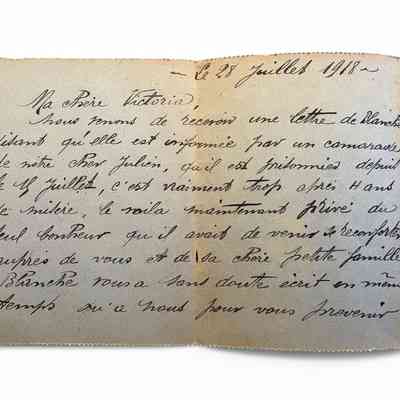 - Le 28 Juillet 1918 -
Ma chère Victoria,
Nous venons de recevoir une lettre de Blanche
disant qu'elle est informée par un camarade
de notre cher Julien, qu'il est prisonnier depuis
le 15 Juillet, c'est vraiment trop après 4 ans
de misère, le voila maintenant privé du
seul bonheur qu'il avait de venir se reconforter
auprès de vous et de sa chère petite famille
Blanche vous a sans doute écrit en même
temps qu'a nous pour vous prevenir